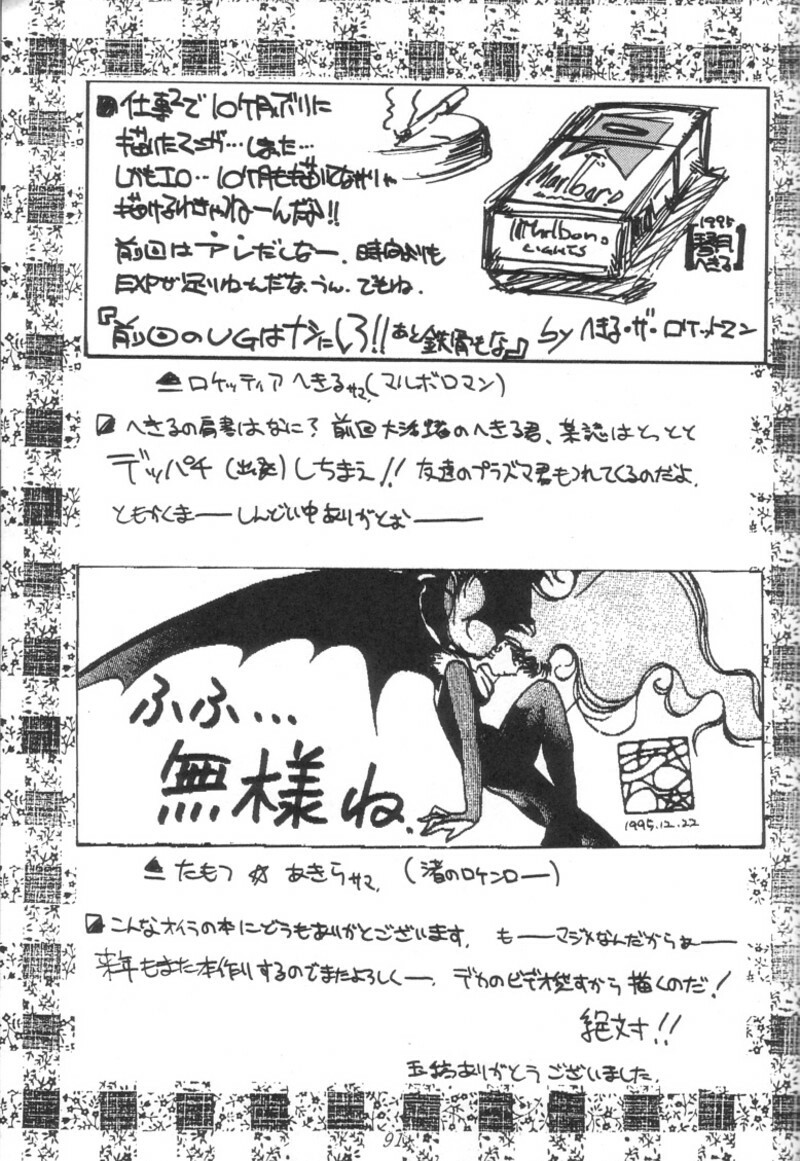 仕事で10ケ月ぶりに
描けたマンガ…しまた…
しかもエロ…10ケ月も描いてなかりゃ
描けるわきゃねーんだな!!
前回はアレだしなー、時間よりも
EXPが足りねーんだな、うん、でもね、
『前回のUGはナシにしろ!!あと鉄骨もな』by へきる・ザ・ロケットマン
Marlboro
Marlboro
LIGHTS
1995
へきる
ロケッティア へきるサマ(マルボロマン)
へきるの肩書はなに? 前回大活躍のへきる君、某誌はとっとと
デッパチ(出発)しちまえ!! 友達のプラズマ君もつれてくるのだよ、
ともかくまーーしんどい中ありがとおーーー
ふふ…
無様ね.
1995.12.22
たもつ☆あきらサマ、(渚のロケンロー)
こんなオイラの本にどうもありがとございます、もーーマジメなんだからぁーー
来年もまた本作りするのでまたよろしくー、デカのビデオ渡すから描くのだ!
絶対!!
玉稿ありがとうございました
91